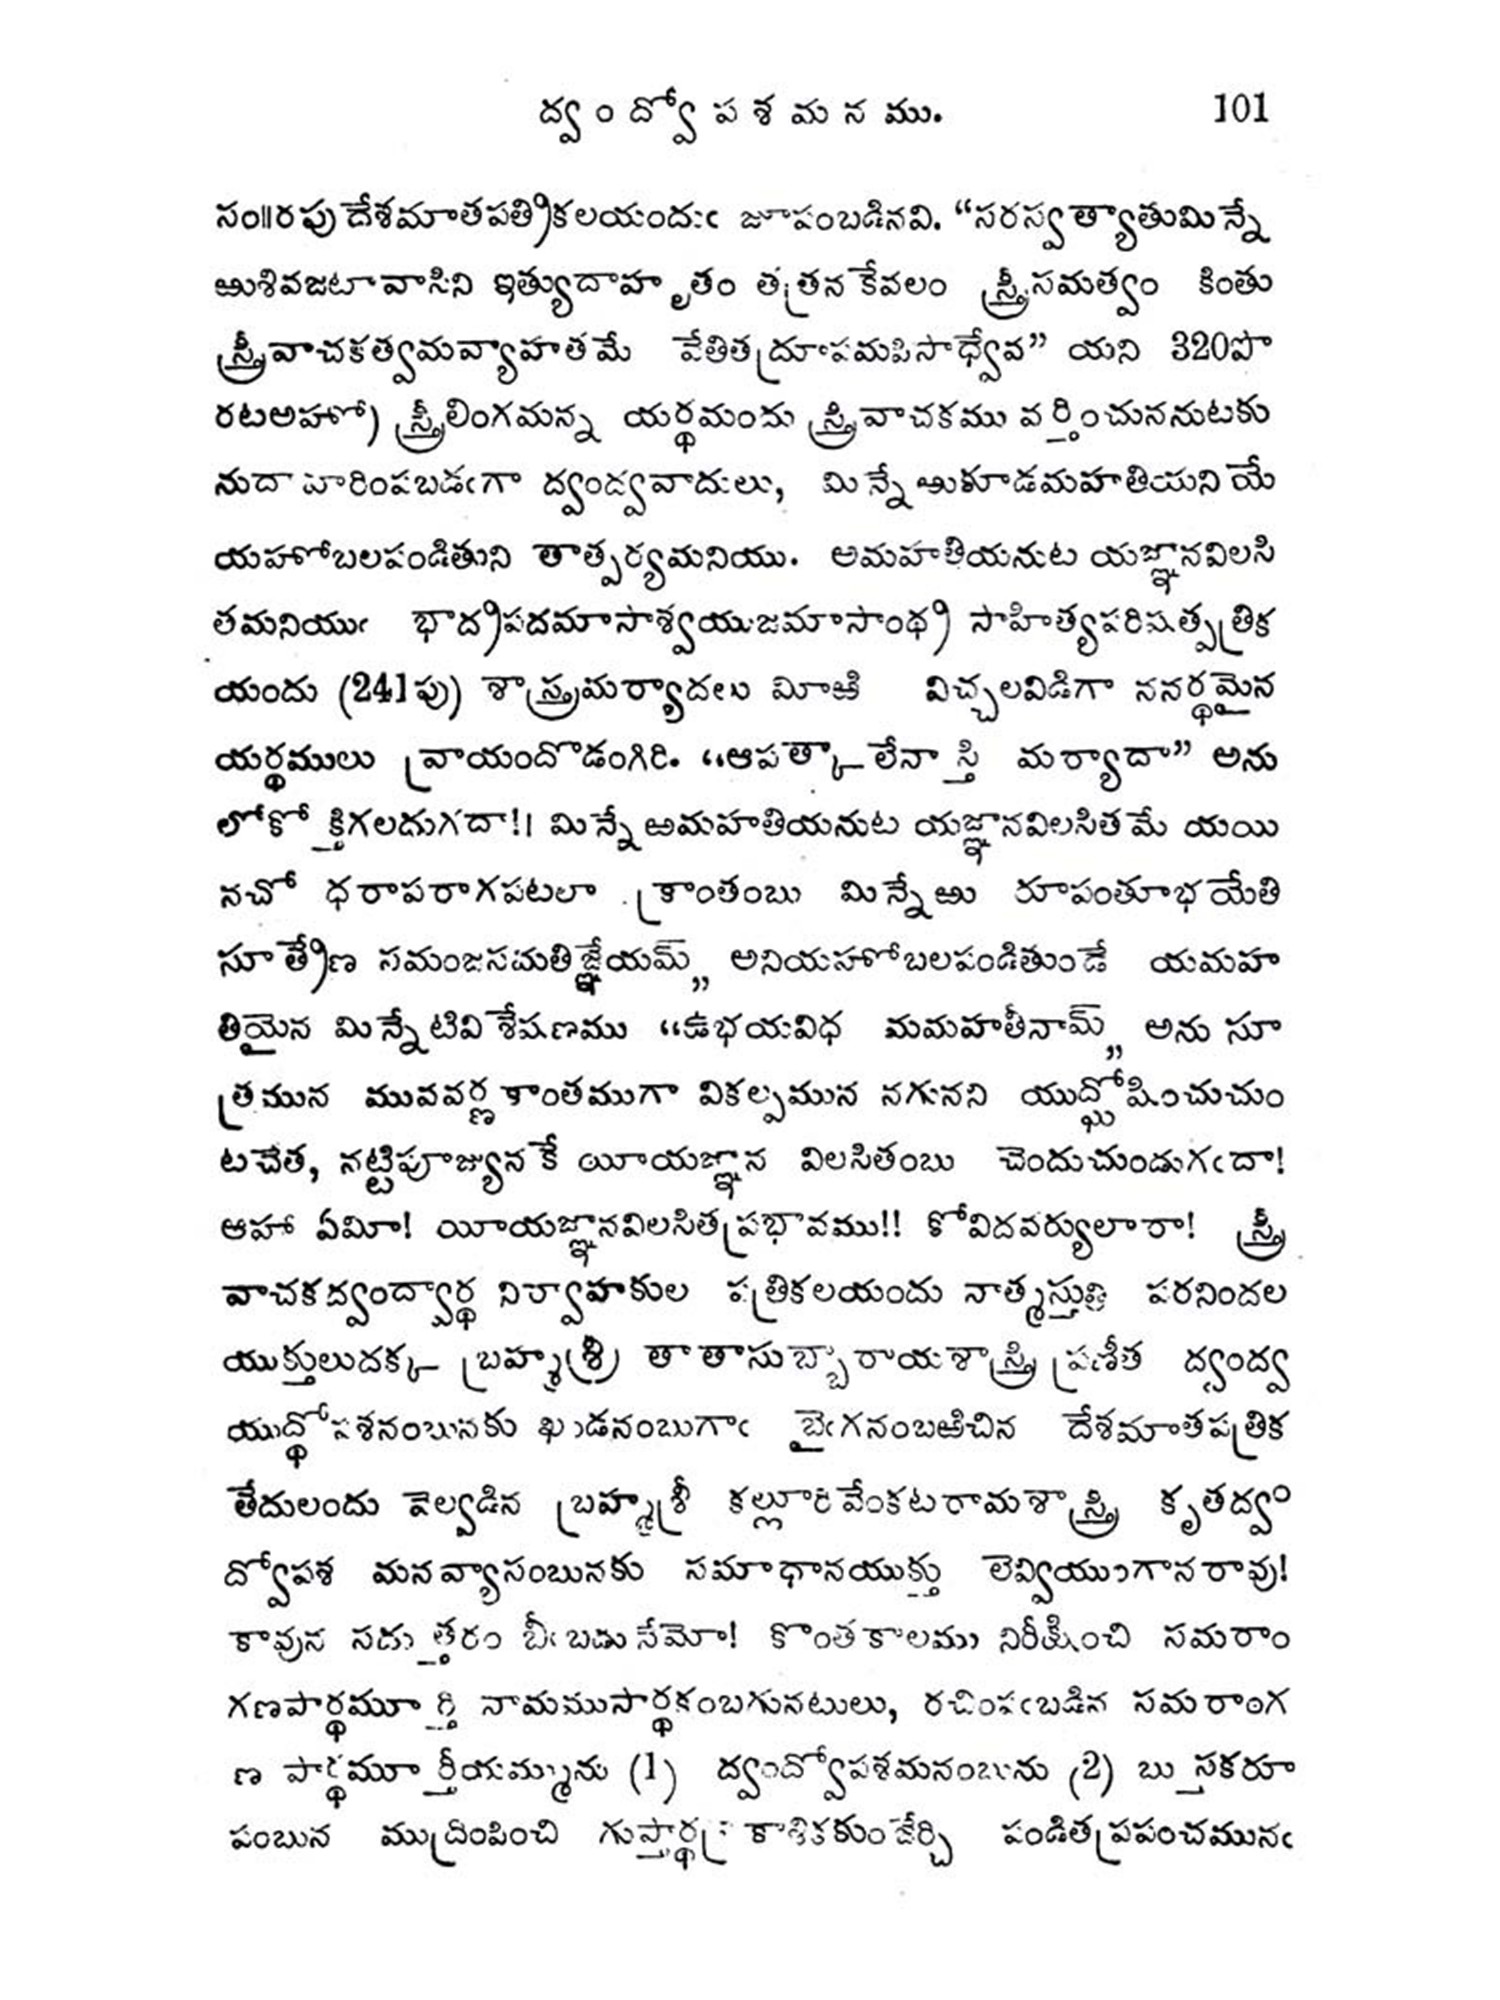 ద్వంద్వోపశమనము. 101
సం॥రపు దేశమాతపత్రికలయందుఁ జూపంబడినవి. “సరస్వత్యాతుమిన్నే
ఱుశివజటావాసిని ఇత్యుదాహృతం తత్రన కేవలం స్త్రీసమత్వం కింతు
స్త్రీవాచకత్వమవ్యాహతమే వేతితద్రూపమపిసాధ్వేవ” యని 320పొ
రటఅహో) స్త్రీలింగమన్న యర్థమందు స్త్రీవాచకము వర్తించుననుటకు
నుదాహరింపబడఁగా ద్వంద్వవాదులు, మిన్నేఱుకూడమహతియనియే
యహోబలపండితుని తాత్పర్యమనియు. అమహతియనుట యజ్ఞానవిలసి
తమనియుఁ భాద్రపదమాసాశ్వయుజమాసాంధ్ర సాహిత్యపరిషత్పత్రిక
యందు (241పు) శాస్త్రమర్యాదలు మీఱి విచ్చలవిడిగా ననర్థమైన
యర్థములు వ్రాయందొడంగిరి. “ఆపత్కాలేనాస్తి మర్యాదా” అను
లోకోక్తిగలదుగదా!! మిన్నేఱమహతియనుట యజ్ఞానవిలసితమే యయి
నచో ధరాపరాగపటలాక్రాంతంబు మిన్నేఱు రూపంతూభయేతి
సూత్రేణ సమంజసమతిజ్ఞేయమ్” అనియహోబలపండితుండే యమహ
తియైన మిన్నేటివిశేషణము “ఉభయవిధ మమహతీనామ్” అను సూ
త్రమున మువవర్ణకాంతముగా వికల్పమున నగునని యుద్ఘోషించుచుం
టచేత, నట్టిపూజ్యునకే యీయజ్ఞాన విలసితంబు చెందుచుండుగఁదా!
ఆహా ఏమీ! యీయజ్ఞానవిలసితప్రభావము!! కోవిదవర్యులారా! స్త్రీ
వాచకద్వంద్వార్థ నిర్వాహకుల పత్రికలయందు నాత్మస్తుతి పరనిందల
యుక్తులుదక్క బ్రహ్మశ్రీ తాతాసుబ్బారాయశాస్త్రి ప్రణీత ద్వంద్వ
యుద్ధోపశనంబునకు ఖండనంబుగాఁ బైఁగనంబఱిచిన దేశమాతపత్రిక
తేదులందు వెల్వడిన బ్రహ్మశ్రీ కల్లూరివేంకటరామశాస్త్రి కృతద్వం
ద్వోపశ మనవ్యాసంబునకు సమాధానయుక్తు లెవ్వియుంగానరావు!
కావున సదుత్తరం బీఁబడుసేమో! కొంతకాలము నిరీక్షించి సమరాం
గణపార్థమూర్తి నామముసార్థకంబగునటులు, రచింపఁబడిన సమరాంగ
ణ పార్థమూర్తీయమ్మును (1) ద్వంద్వోపశమనంబును (2) బుస్తకరూ
పంబున ముద్రింపించి గుప్తార్థప్రకాశికకుంజేర్చి పండితప్రపంచమునఁ